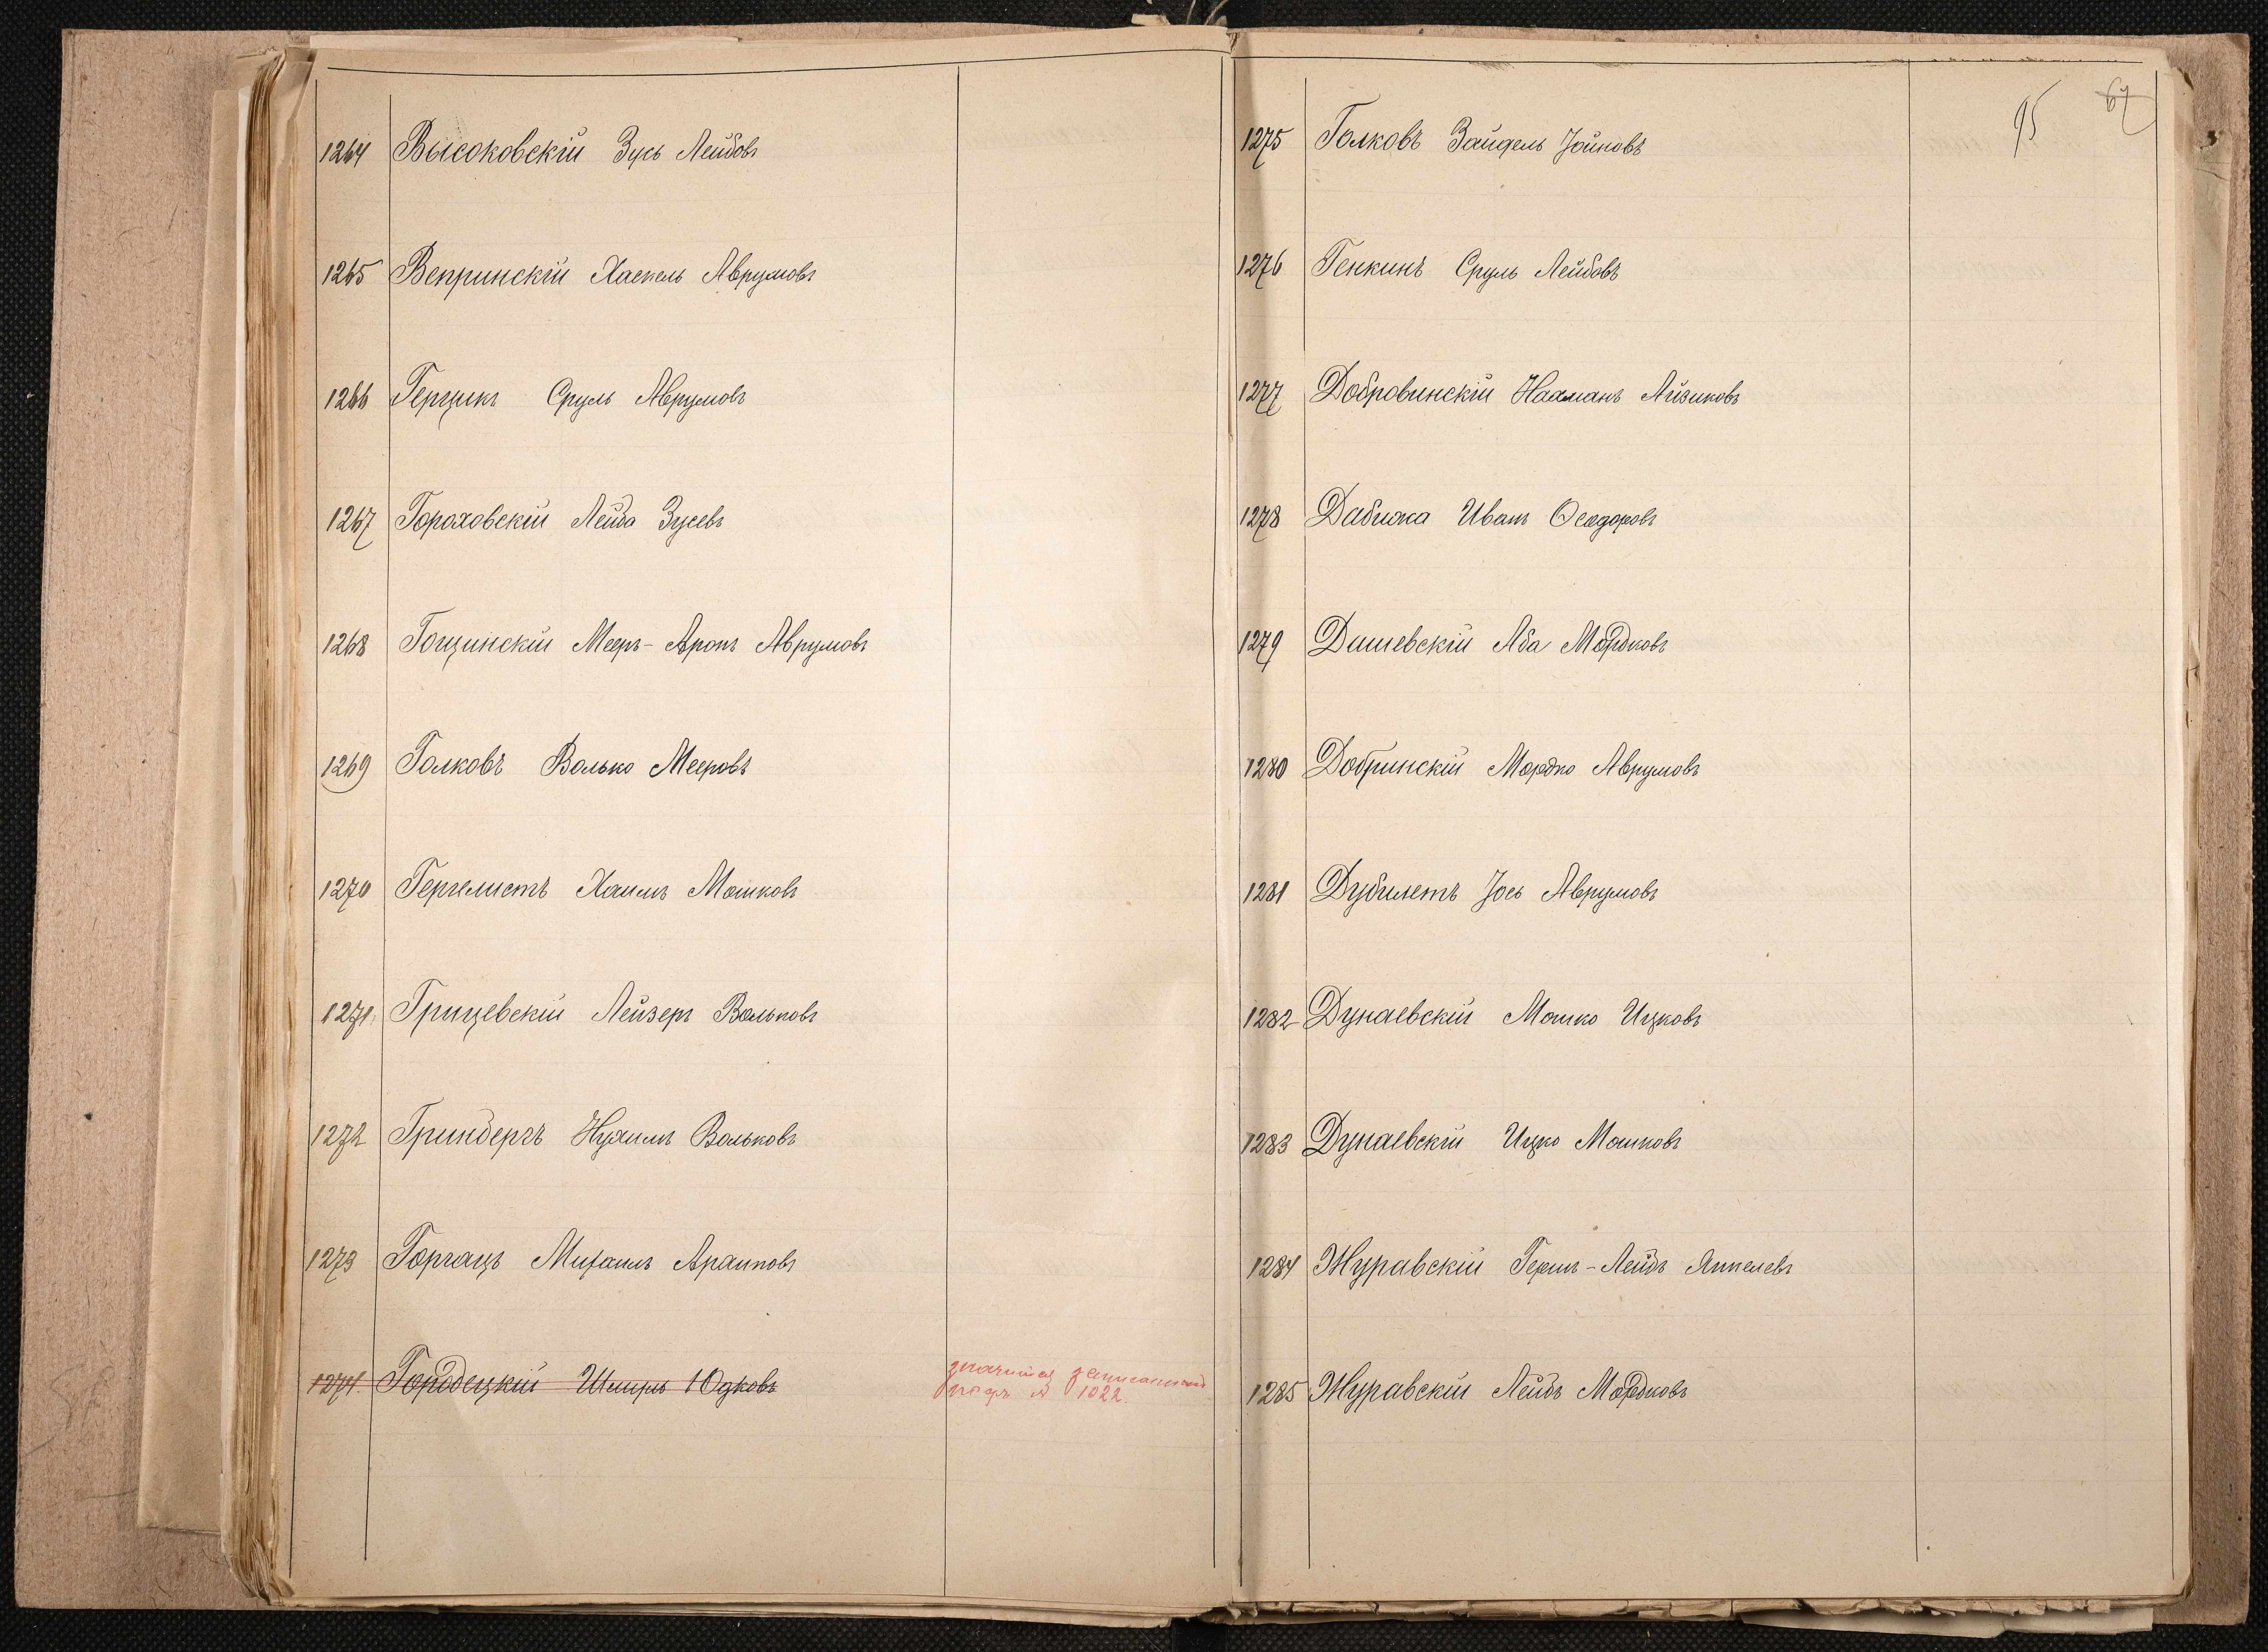 1264 Высоковскій Зусь Лейбовъ
1265 Вепринскій Хаскель Аврумовъ
1266 Герцикъ Сруль Аврумовъ
1267 Гороховскій Лейба Зусевъ
1268 Гощинскій Мееръ-Аронъ Аврумовъ
1269 Голковъ Волько Мееровъ
1270 Гергелистъ Хаимъ Мошковъ
1271 Грицевскій Лейзеръ Вольковъ
1272 Гринбергъ Нухимъ Вольковъ
1273 Горгацъ Михаилъ
1274 Городецкій Шмуль Юдковъ
значится записаннымъ
подъ № 1022.
95
67
1275 Голковъ Зайдель Іойновъ
1276 Генкинъ Сруль Лейбовъ
1277 Добровинскій Нааманъ Айзиковъ
1278 Дабижа Иванъ Ѳеодоровъ
1279 Дашевскій Аба Мордковъ
1280 Добринскій Мордко Аврумовъ
1281 Дубилетъ Іось Аврумовъ
1282 Дунаевскій Мошко Ицковъ
1283 Дунаевскій Ицко Мошковъ
1284 Журавскій Гершъ-Лейбъ Янкелевъ
1285 Журавскій Лейбъ Мордковъ